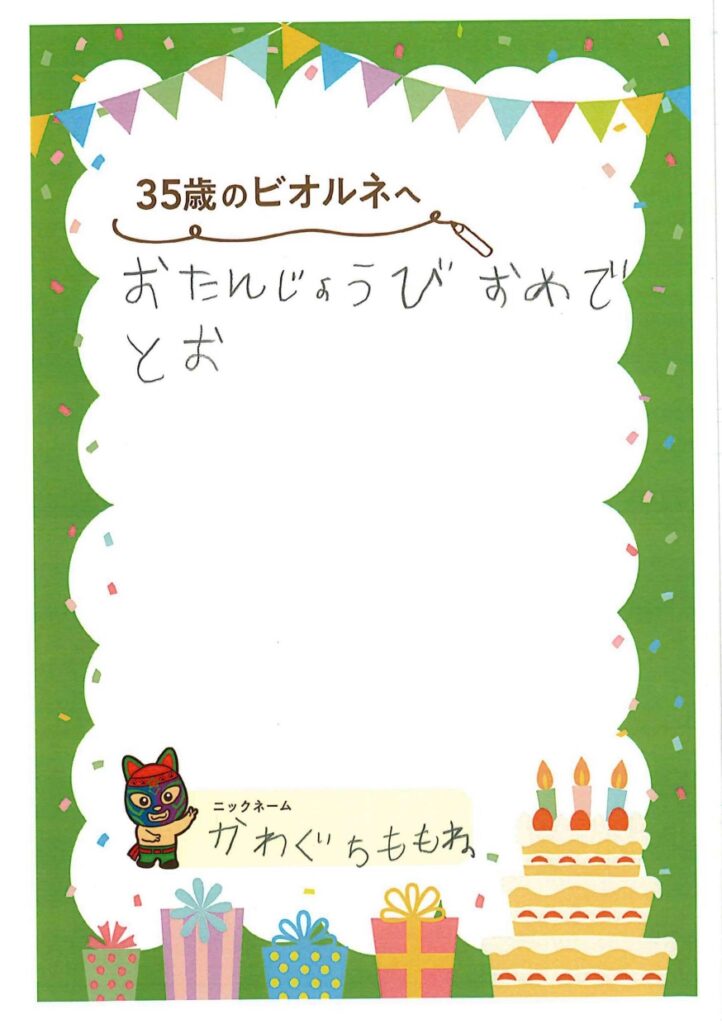 35歳のビオルネへ
おたんじょうび おめで
とお
ニックネーム
かわぐちももね